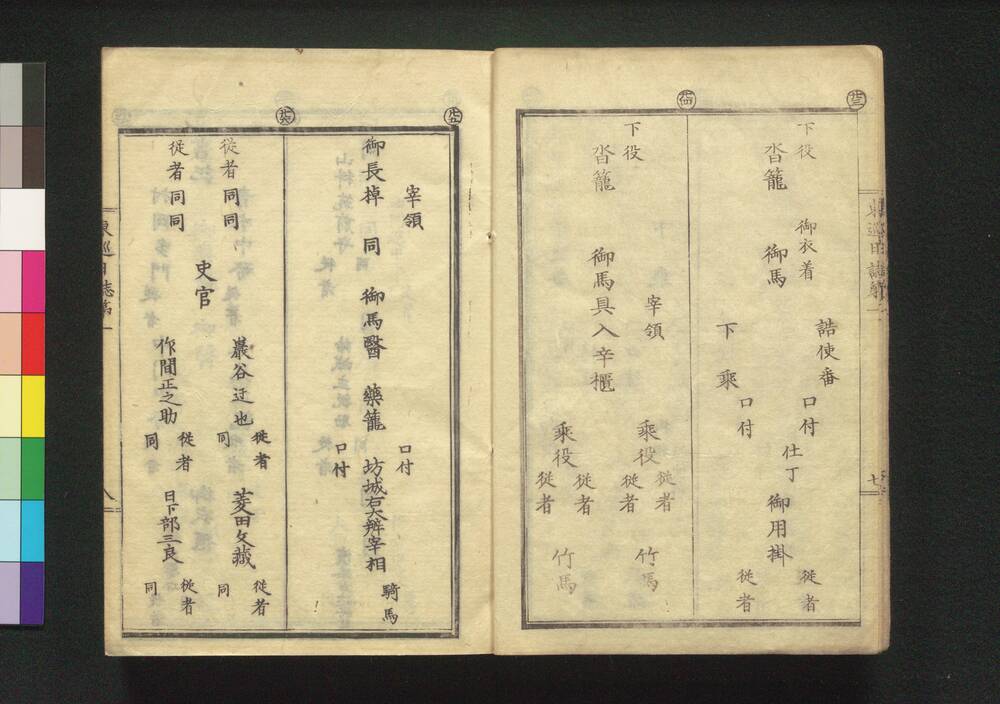 下役
沓籠
御衣着
御馬
詰使番
下乘
口付
口付
仕丁
御用掛
從者
從者
下役
沓籠
御馬具入辛櫃
宰領
乘役
從者
從者
竹馬
乘役
從者
從者
竹馬
七
宰領
御長掉
同
御馬醫
藥籠
口付
口付
坊城右大辨宰相
騎馬
從者同同
從者同同
史官
巖谷迂也
從者
同
菱田文藏
從者
同
作間正之助
從者
同
日下部三良
從者
同
東巡日誌第一
八